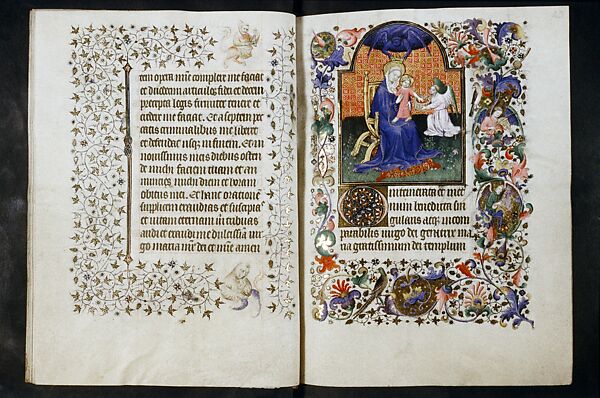 tem opera mie complere me faciat
et duodecim articulos fidei et decem
precepta legis firmiter tenere et
credere me faciat. Et a septem pec
catis criminalibus me liberet
et defendat usq; in finem. Et in
nouissimis meis diebus osten
de michi faciem tuam et an
nuncies michi diem et horam
obitus mei. Et hanc orationem
supplicem exaudias et suscipias
et uitam eternam michi tribuas
audi et exaudi me dulcissima uir
go maria dei et mie amen
O intemerata et in eter
num benedicta sin
gularis atq; incom
parabilis uirgo dei genitrix ma
ria gratissimum dei templum